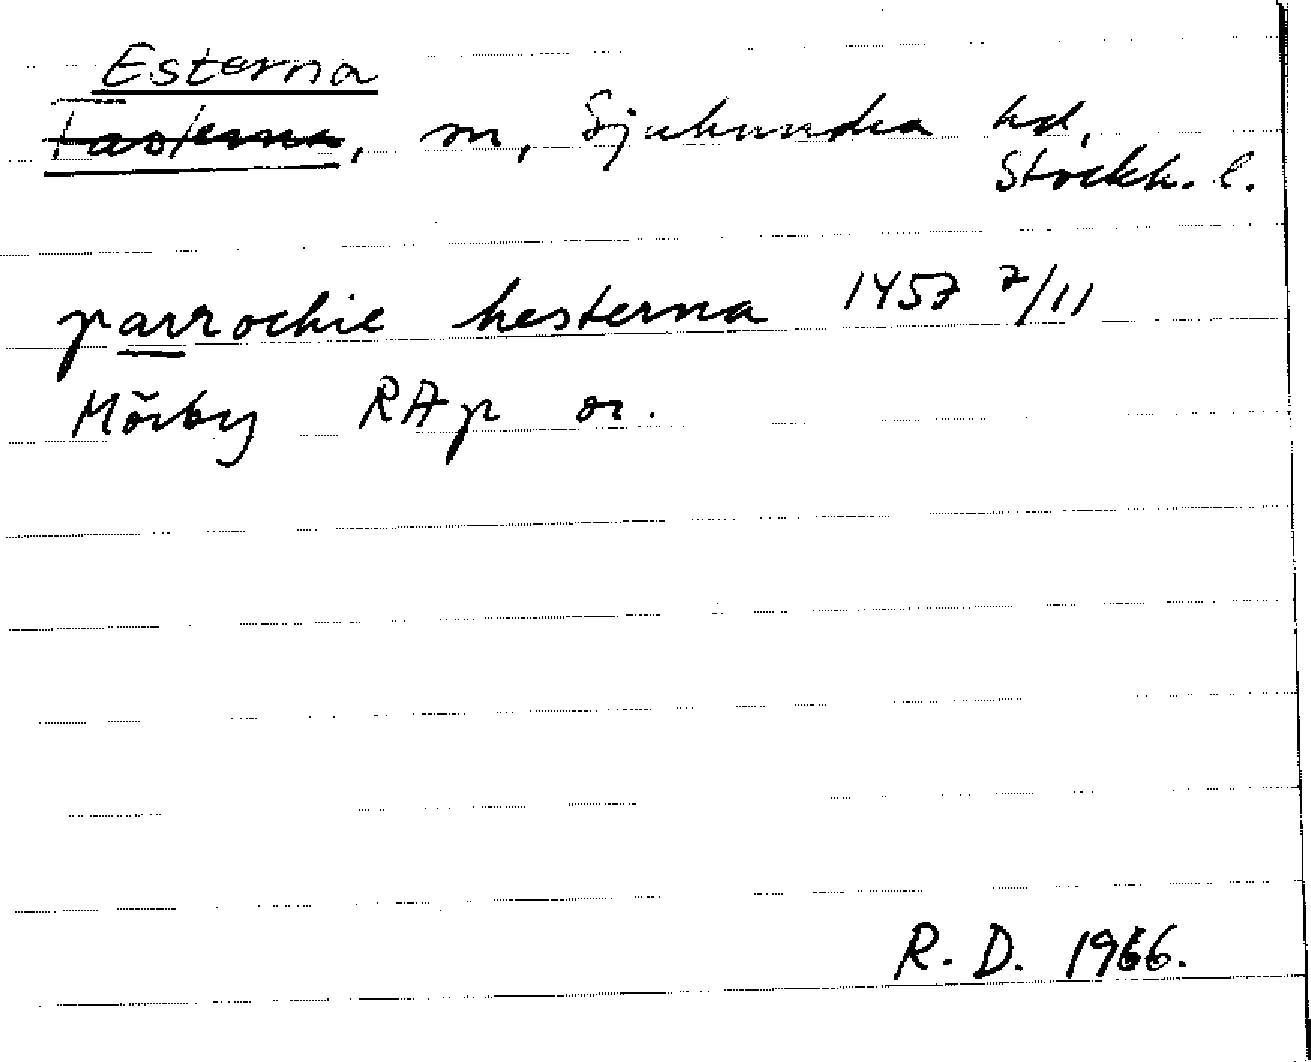 Esterna
Fasterna, sn, Sjuhundra hd,
Stockh. l.
parrochie hesterna 1457 7/11
Mörby RAp or.
R. D. 1966.